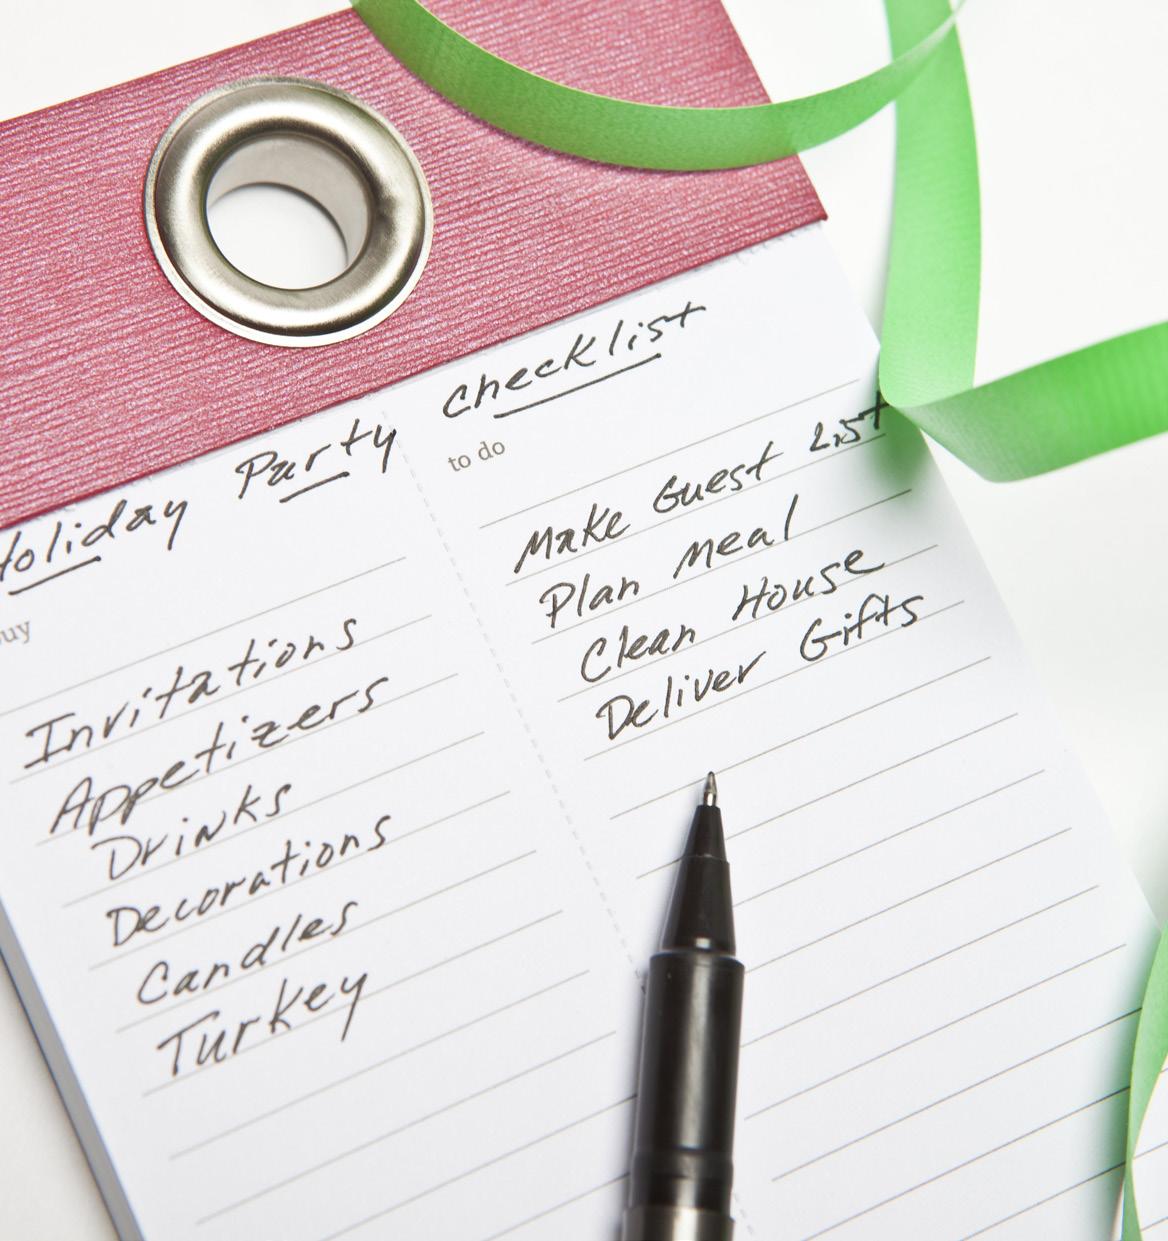 Holiday Party Checklist
buy
Invitations
Appetizers
Drinks
Decorations
Candles
Turkey
to do
Make Guest List
Plan Meal
Clean House
Deliver Gifts